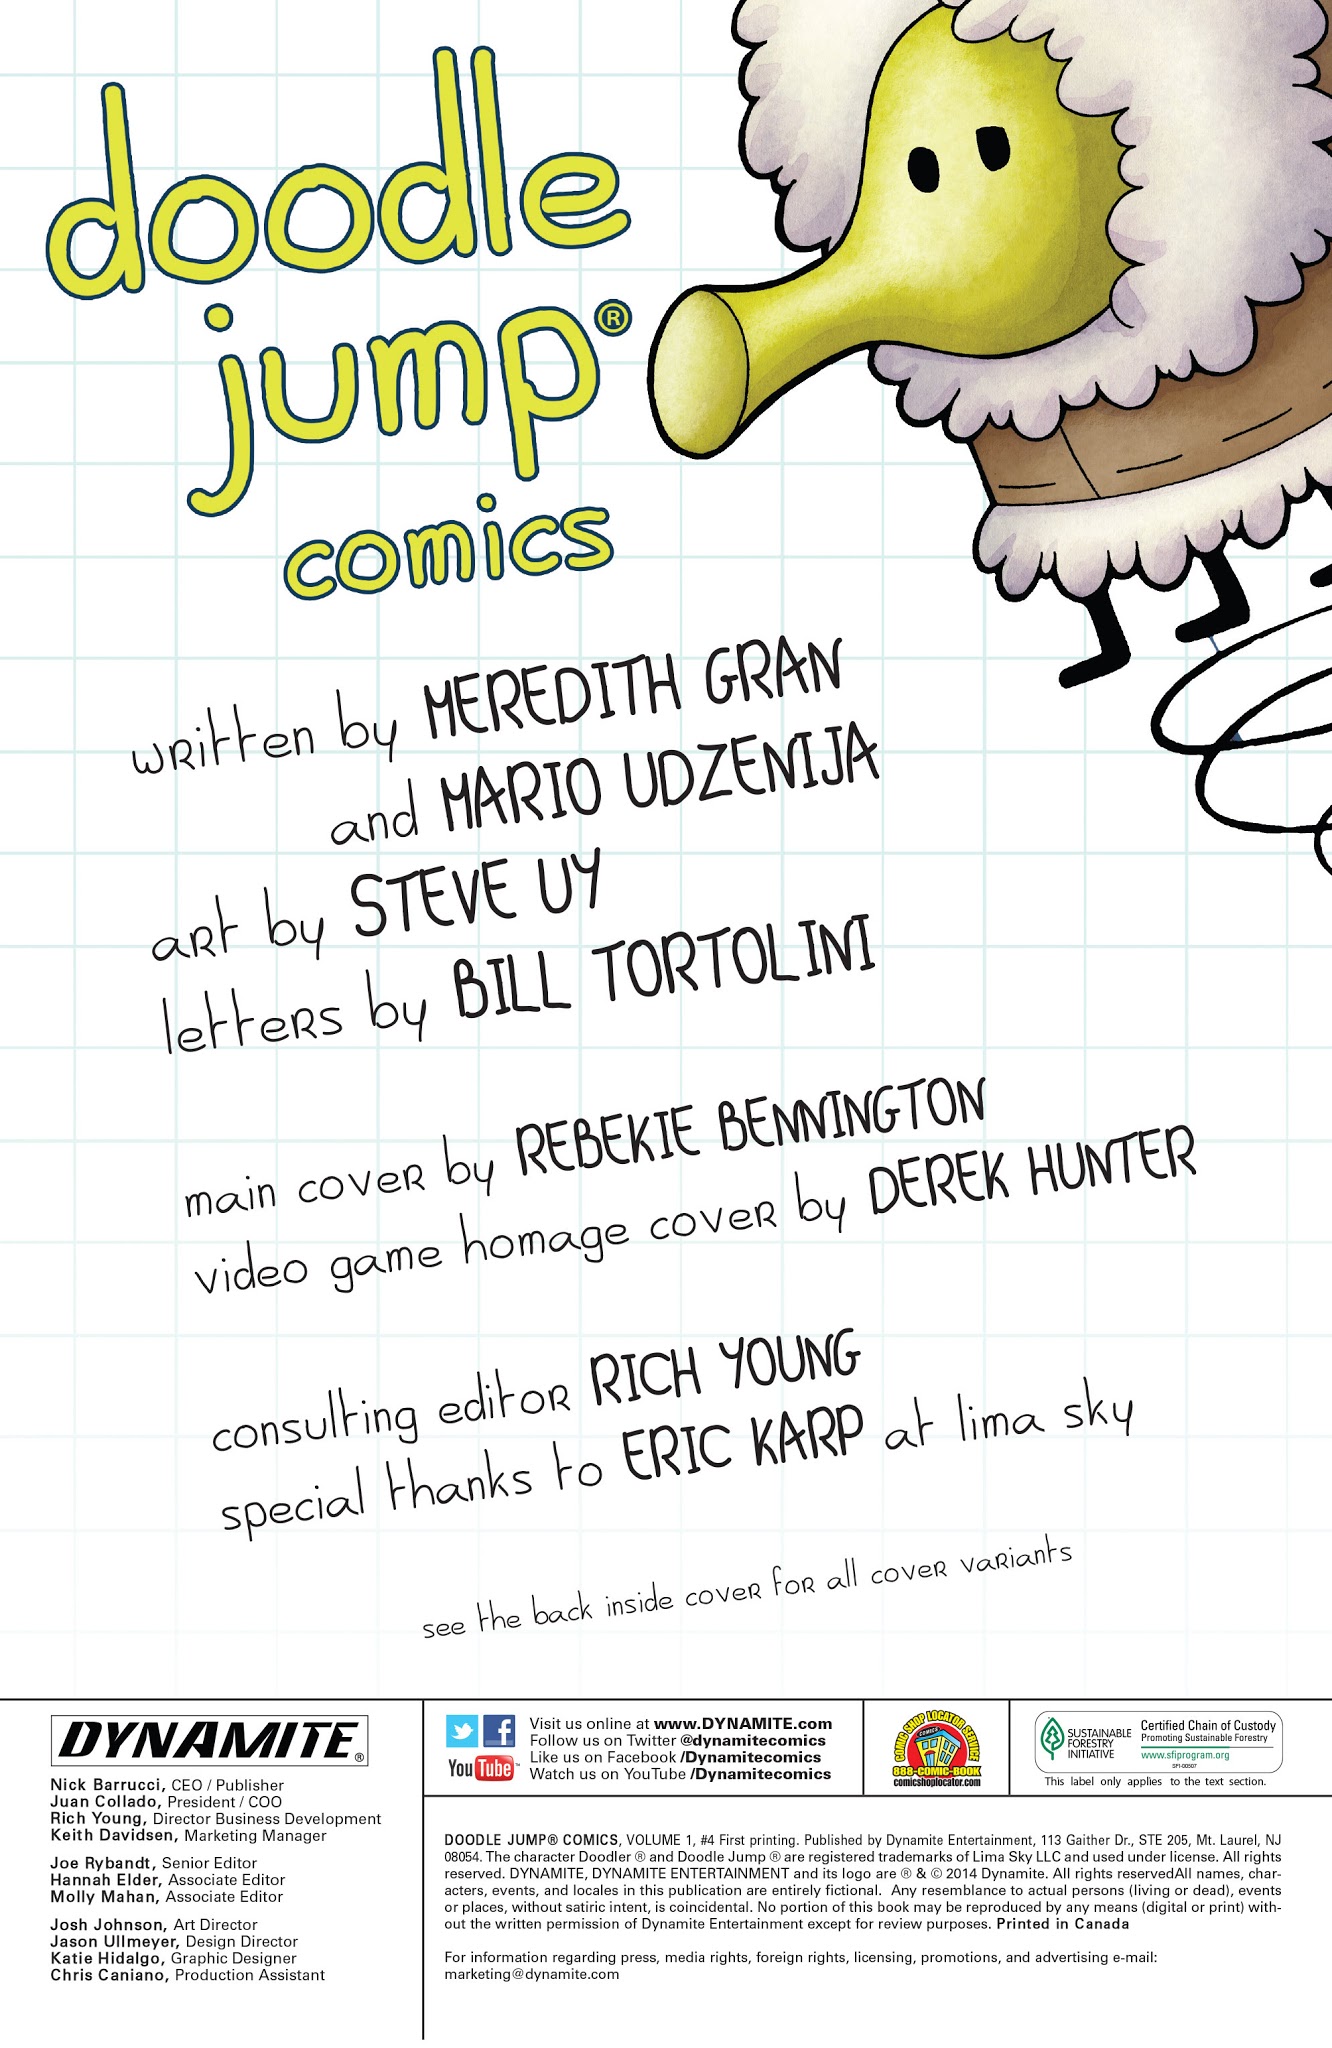 doodle
jump®
comics
written by MEREDITH GRAN
and MARIO UDZENIJA
art by STEVE UY
letters by BILL TORTOLINI
main cover by REBEKIE BENNINGTON
video game homage cover by DEREK HUNTER
consulting editor RICH YOUNG
special thanks to ERIC KARP at lima sky
see the back inside cover for all cover variants
DYNAMITE®
Nick Barrucci, CEO / Publisher
Juan Collado, President / COO
Rich Young, Director Business Development
Keith Davidsen, Marketing Manager
Joe Rybandt, Senior Editor
Hannah Elder, Associate Editor
Molly Mahan, Associate Editor
Josh Johnson, Art Director
Jason Ullmeyer, Design Director
Katie Hidalgo, Graphic Designer
Chris Caniano, Production Assistant
YouTube™
Visit us online at www.DYNAMITE.com
Follow us on Twitter @dynamitecomics
Like us on Facebook /Dynamitecomics
Watch us on YouTube /Dynamitecomics
COMIC SHOP LOCATOR SERVICE
COMICS
888-COMIC-BOOK
comicshoplocator.com
SUSTAINABLE
FORESTRY
INITIATIVE
Certified Chain of Custody
Promoting Sustainable Forestry
www.sfiprogram.org
SFI-00507
This label only applies to the text section.
DOODLE JUMP® COMICS, VOLUME 1, #4 First printing. Published by Dynamite Entertainment, 113 Gaither Dr., STE 205, Mt. Laurel, NJ
08054. The character Doodler ® and Doodle Jump ® are registered trademarks of Lima Sky LLC and used under license. All rights
reserved. DYNAMITE, DYNAMITE ENTERTAINMENT and its logo are ® & © 2014 Dynamite. All rights reservedAll names, char-
acters, events, and locales in this publication are entirely fictional. Any resemblance to actual persons (living or dead), events
or places, without satiric intent, is coincidental. No portion of this book may be reproduced by any means (digital or print) with-
out the written permission of Dynamite Entertainment except for review purposes. Printed in Canada
For information regarding press, media rights, foreign rights, licensing, promotions, and advertising e-mail:
marketing@dynamite.com